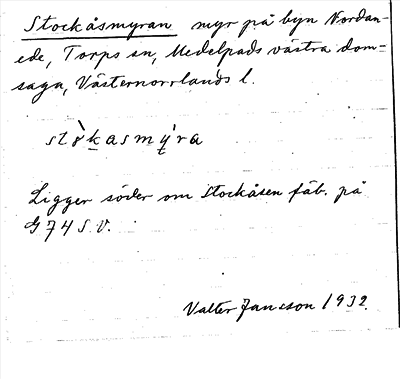 Stockåsmyran myr på byn Nordan-
ede, Torps sn, Medelpads västra dom-
saga, Västernorrlands l.
stòkasmýra
Ligger söder om Stockåsen fäb. på
G74 S.V.
Valter Jansson 1932.